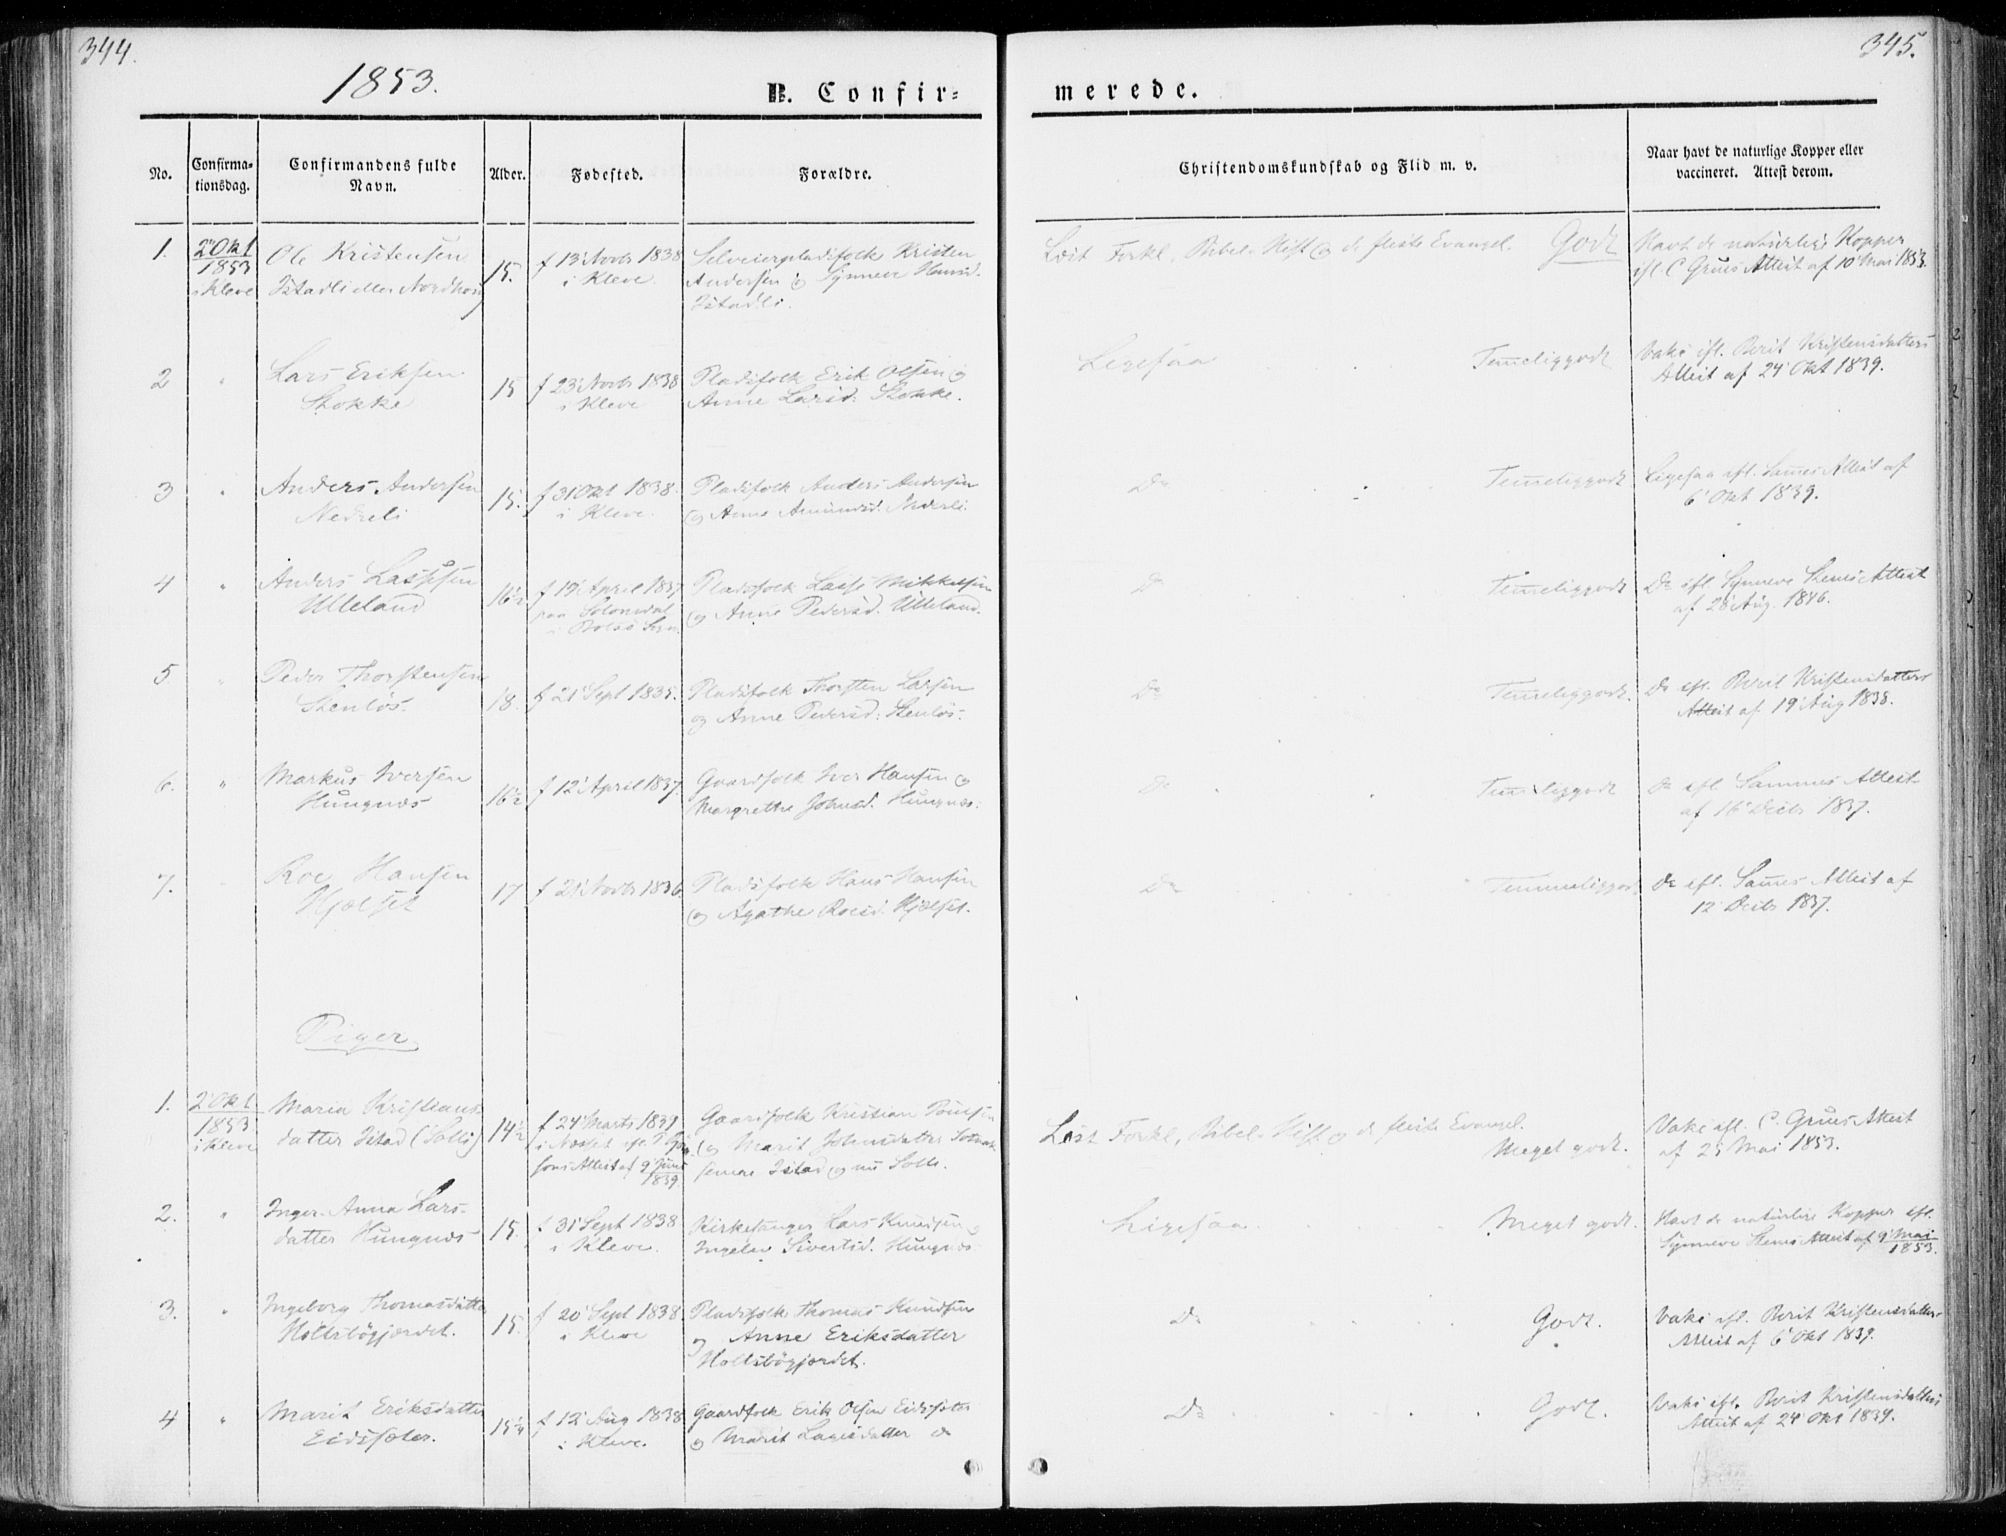 344.
345.
1853.
B. Confir=
merede.
No.
Confirma=
tionsdag.
Confirmandens fulde
Navn.
Alder.
Fødested.
Forældre.
Christendomskundskab og Flid m. v.
Naar havt de naturlige Kopper eller
vaccineret. Attest derom.
1.
2 Okt
1853
i Kleve
Ole Kristensen
Istadli eller Nordhoug
15.
f 13 Novbr 1838
i Kleve.
Selveierpladsfolk Kristen
Andersen og Synneve Hansd.
Istadli.
Læst Forkl, Bibel-Hist og de fleste Evangel. Godt
Havt de naturlige Kopper
ifl. C Grues Attest af 10 Mai 1853.
2
"
Lars Eriksen
Stokke
15
f 23 Novbr 1838
i Kleve
Pladsfolk Erik Olsen og
Anne Larsd: Stokke.
Ligesaa . . . Temeliggodt
Vaks ifl. Berit Kristensdatters
Attest af 24 Okt 1839.
3
"
Anders Andersen
Nedreli
15.
f 31 Okt 1838.
i Kleve.
Pladsfolk Anders Andersen
og Anne Amundsd. Nedreli
Do Temeliggodt
Ligesaa ifl. Sames Attest af
6 Okt 1839.
4
"
Anders Lassesen
Ulleland
16½
f 19 April 1837
paa Solemdal
i Bolsø Sogn
Pladsfolk Lasse Mikkelsen
og Anne Pedersd. Ulleland.
Do Temeliggodt
Do ifl Synneve Stenes Attest
af 28 Aug. 1846.
5
"
Peder Thorstensen
Stenløs.
18.
f 21 Sept 1835.
Pladsfolk Thorsten Larsen
og Anne Pedersd: Stenløs.
Do Temeliggodt.
Do ifl. Berit Kristensdatters
Attest af 19 Aug 1838.
6.
"
Markus Iversen
Hungnæs
16½
f 12 April 1837.
Gaardfolk Iver Hansen og
Margrethe Johnsd. Hungnæs.
Do Temeliggodt
Do ifl Sammes Attest
af 16 Decbr 1837.
7.
Roe Hansen
Hjelset
17
f 21 Novbr 1836
Pladsfolk Hans Hansen
og Agathe Roesd. Hjelset.
Do Temmeliggodt.
Do ifl. Sames Attest af
12 Decbr 1837.
Piger
1.
2 Okt.
1853.
i Kleve
Maria Kristians-
datter Istad (Solli)
14½
f 24 Marts 1839
i Næsset ifl.
Attest af 9 Juni
1839
Gaardfolk Kristian
og Marit Johnsdatter
Istad og nu Solli.
Læst Forkl, Bibel-Hist og de fleste Evangel.
Meget godt.
Vaks ifl. C. Grues Attest
af 25 Mai 1853.
2.
"
Inger-Anna Lars-
datter Hungnæs
15
f 31 Sept 1838
i Kleve.
Kirkesanger Lars Knudsen og
Ingelev Sivertsd. Hungnæs
Ligesaa Meget godt.
Havt de naturlige Kopper ifl.
Synneve Stenes Attest af 9 Mai
1853.
3.
"
Ingeborg Thomasdatter
Holtsbøgjærdet.
15
f 20 Sept 1838.
i Kleve
Pladsfolk Thomas Knudsen
og Anne Eriksdatter
Holtsbøgjærdet.
Do Godt.
Vaks ifl. Berit Kristensdatters
Attest af 6 Okt 1839.
4
"
Marit Eriksdatter
Eidssæter.
15¼
f 12 Aug 1838
i Kleve.
Gaardfolk Erik Olsen Eidssæter
og Marit Larsdatter do
Do Godt.
Vaks ifl. Berit Kristensdatters
Attest af 24 Okt 1839.